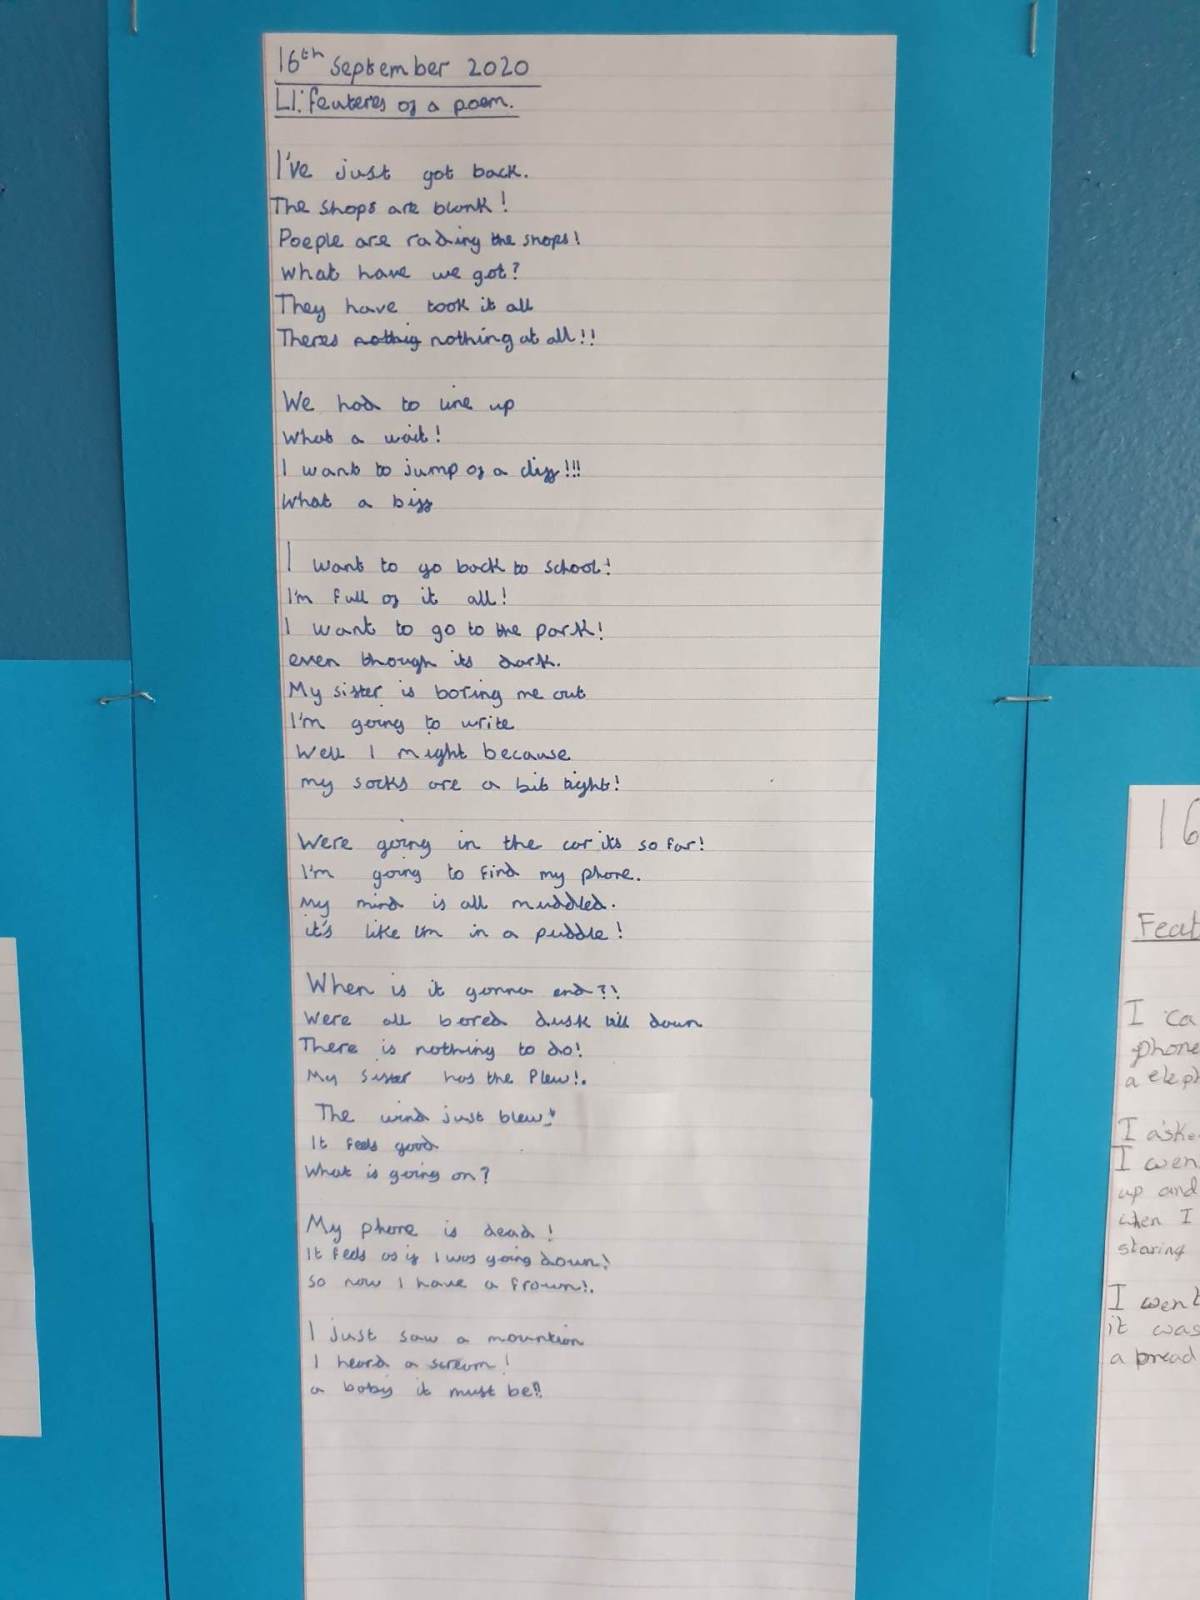 16th September 2020
LI: feuteres of a poem.
I've just got back.
The shops are blank!
Poeple are rading the shops!
What have we got?
They have took it all
Theres nothig nothing at all!!
We had to line up
What a wait!
I want to jump of a cliff!!!
What a biff
I want to go back to school!
I'm full of it all!
I want to go to the park!
even though its dark.
My sister is boring me out
I'm going to write
Well I might because
my socks are a bit tight!
Were going in the car its so far!
I'm going to find my phone.
My mind is all muddled.
it's like I'm in a puddle!
When is it gonna end?!
Were all bored dusk till down
There is nothing to do!
My sister has the Plew!.
The wind just blew!
It feels good
What is going on?
My phone is dead!
It feels as if I was going down!
so now I have a frown!.
I just saw a mountion
I heard a scream!
a baby it must be!!
16
Feat
I ca
phone
a eleph
I aske
I wen
up and
when I
staring
I went
it was
a bread